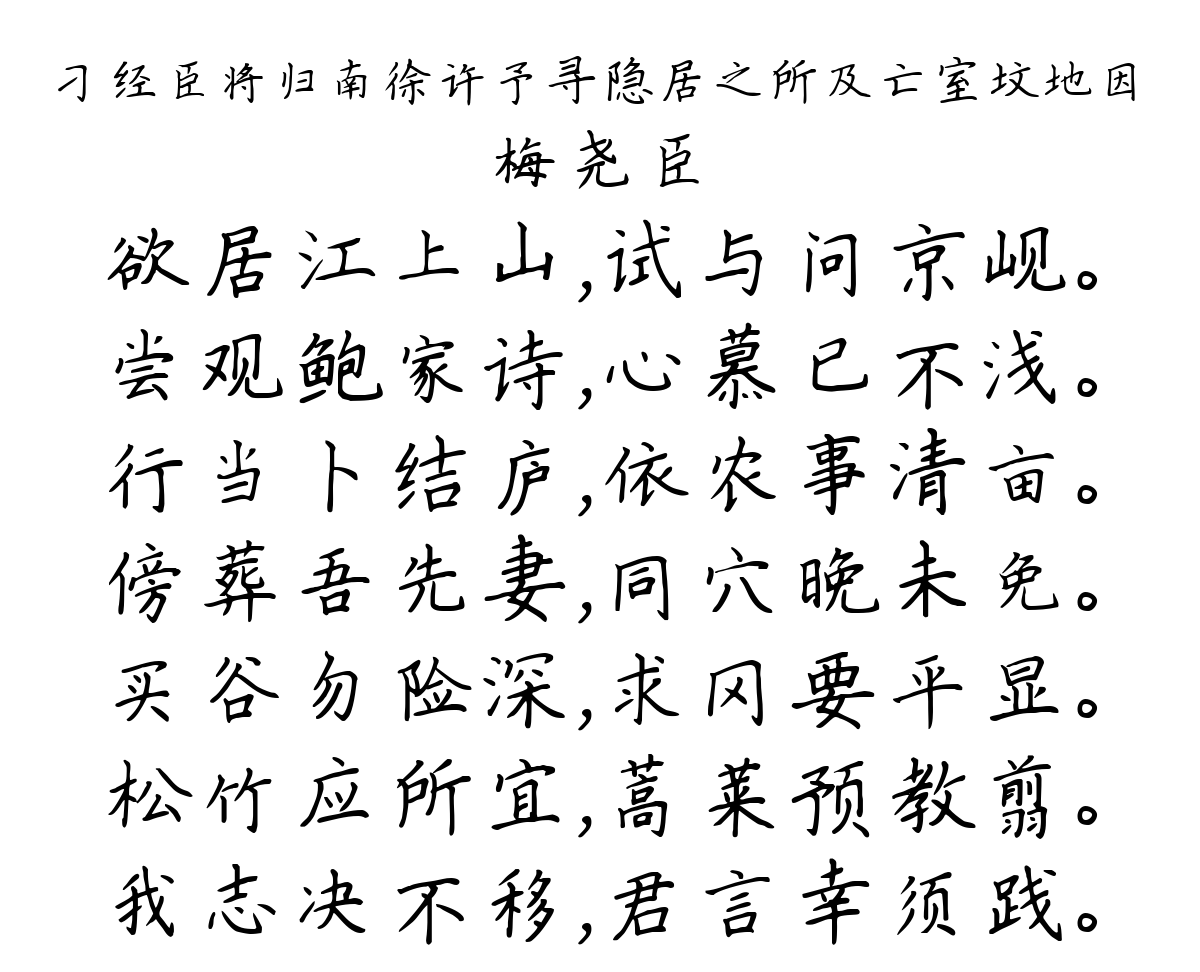 刁经臣将归南徐许予寻隐居之所及亡室坟地因
梅尧臣
欲居江上山,试与问京岘。
尝观鲍家诗,心慕已不浅。
行当卜结庐,依农事清亩。
傍葬吾先妻,同穴晚未免。
买谷勿险深,求冈要平显。
松竹应所宜,蒿莱预教剪。
我志决不移,君言幸须践。